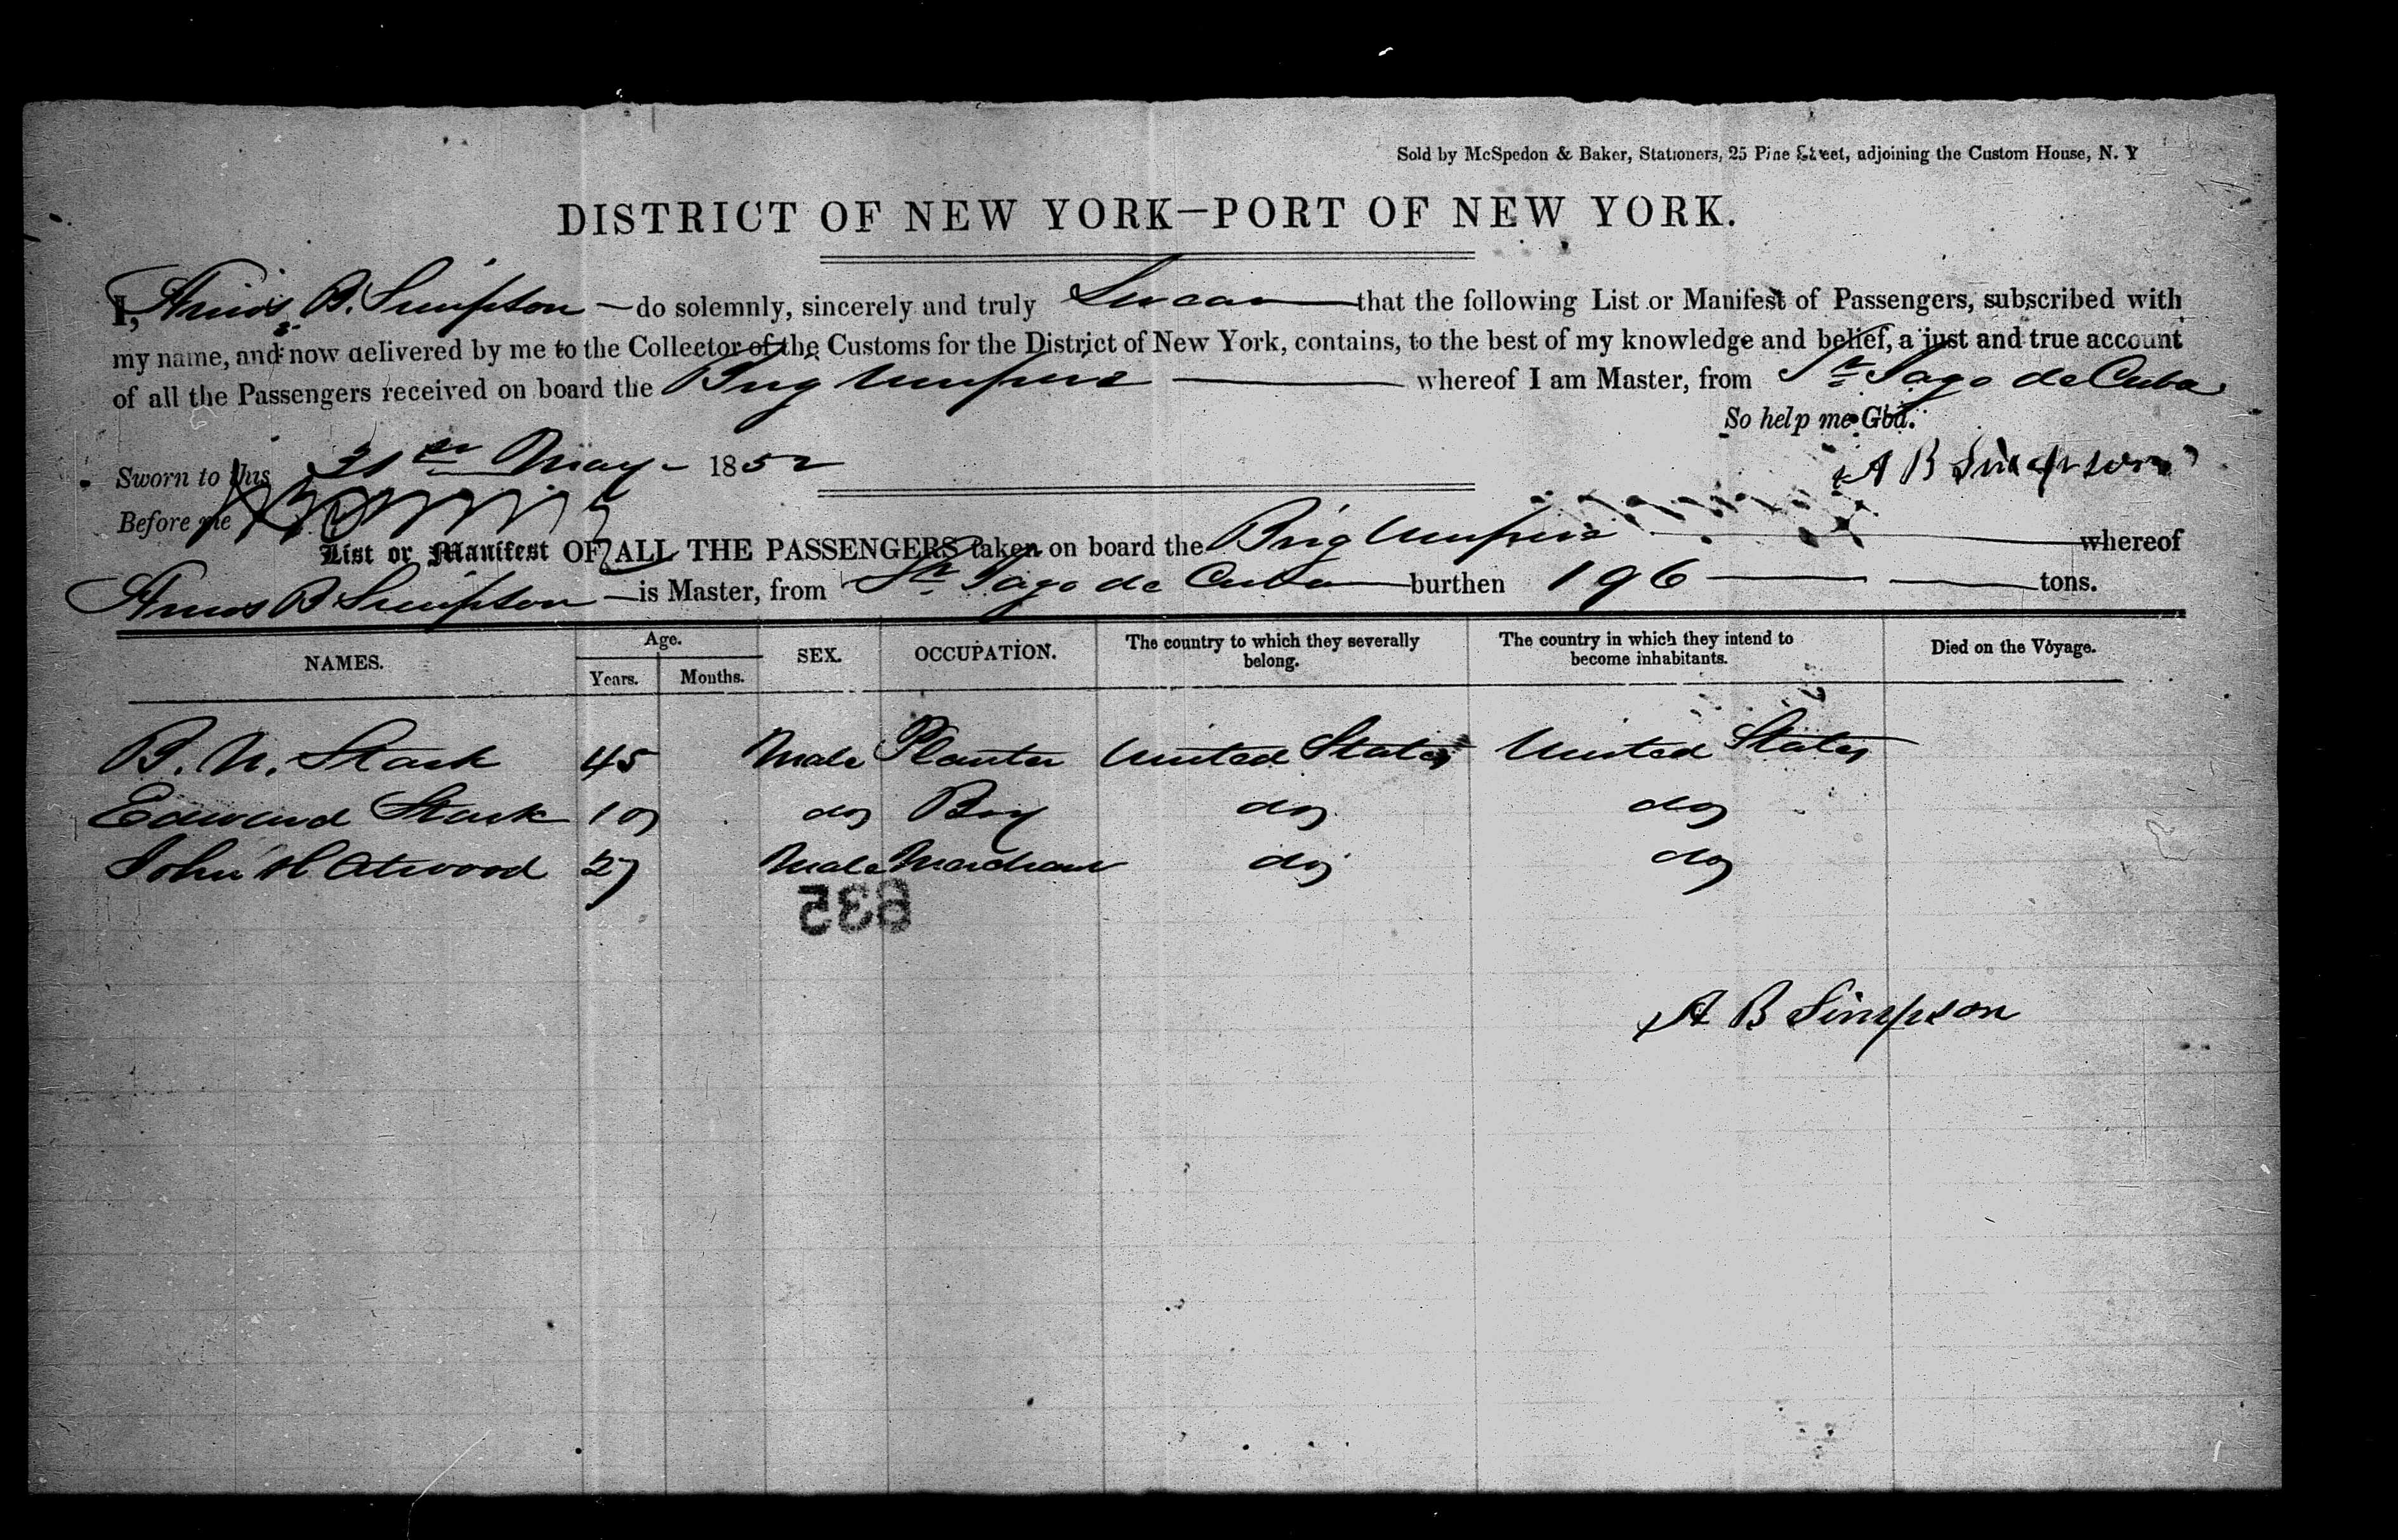 Sold by McSpedon & Baker, Stationers, 25 Pine Street, adjoining the Custom House, N. Y
DISTRICT OF NEW YORK—PORT OF NEW YORK.
I, Amos B. Simpson — do solemnly, sincerely and truly Swear — that the following List or Manifest of Passengers, subscribed with
my name, and now delivered by me to the Collector of the Customs for the District of New York, contains, to the best of my knowledge and belief, a just and true account
of all the Passengers received on board the Brig Umpire — whereof I am Master, from St. Jago de Cuba
So help me God.
Sworn to this 31st May - 1852
A B Simpson
Before me
List or Manifest OF ALL THE PASSENGERS taken on board the Brig Umpire — whereof
Amos B Simpson — is Master, from St. Jago de Cuba — burthen 196 — tons.
NAMES. Age. Years. Months. SEX. OCCUPATION. The country to which they severally belong. The country in which they intend to become inhabitants. Died on the Voyage.
B. N. Stark 45 Male Planter United States United States
Edward Stark 10 do Boy do do
John H Atwood 27 Male Merchant do do
635
A B Simpson